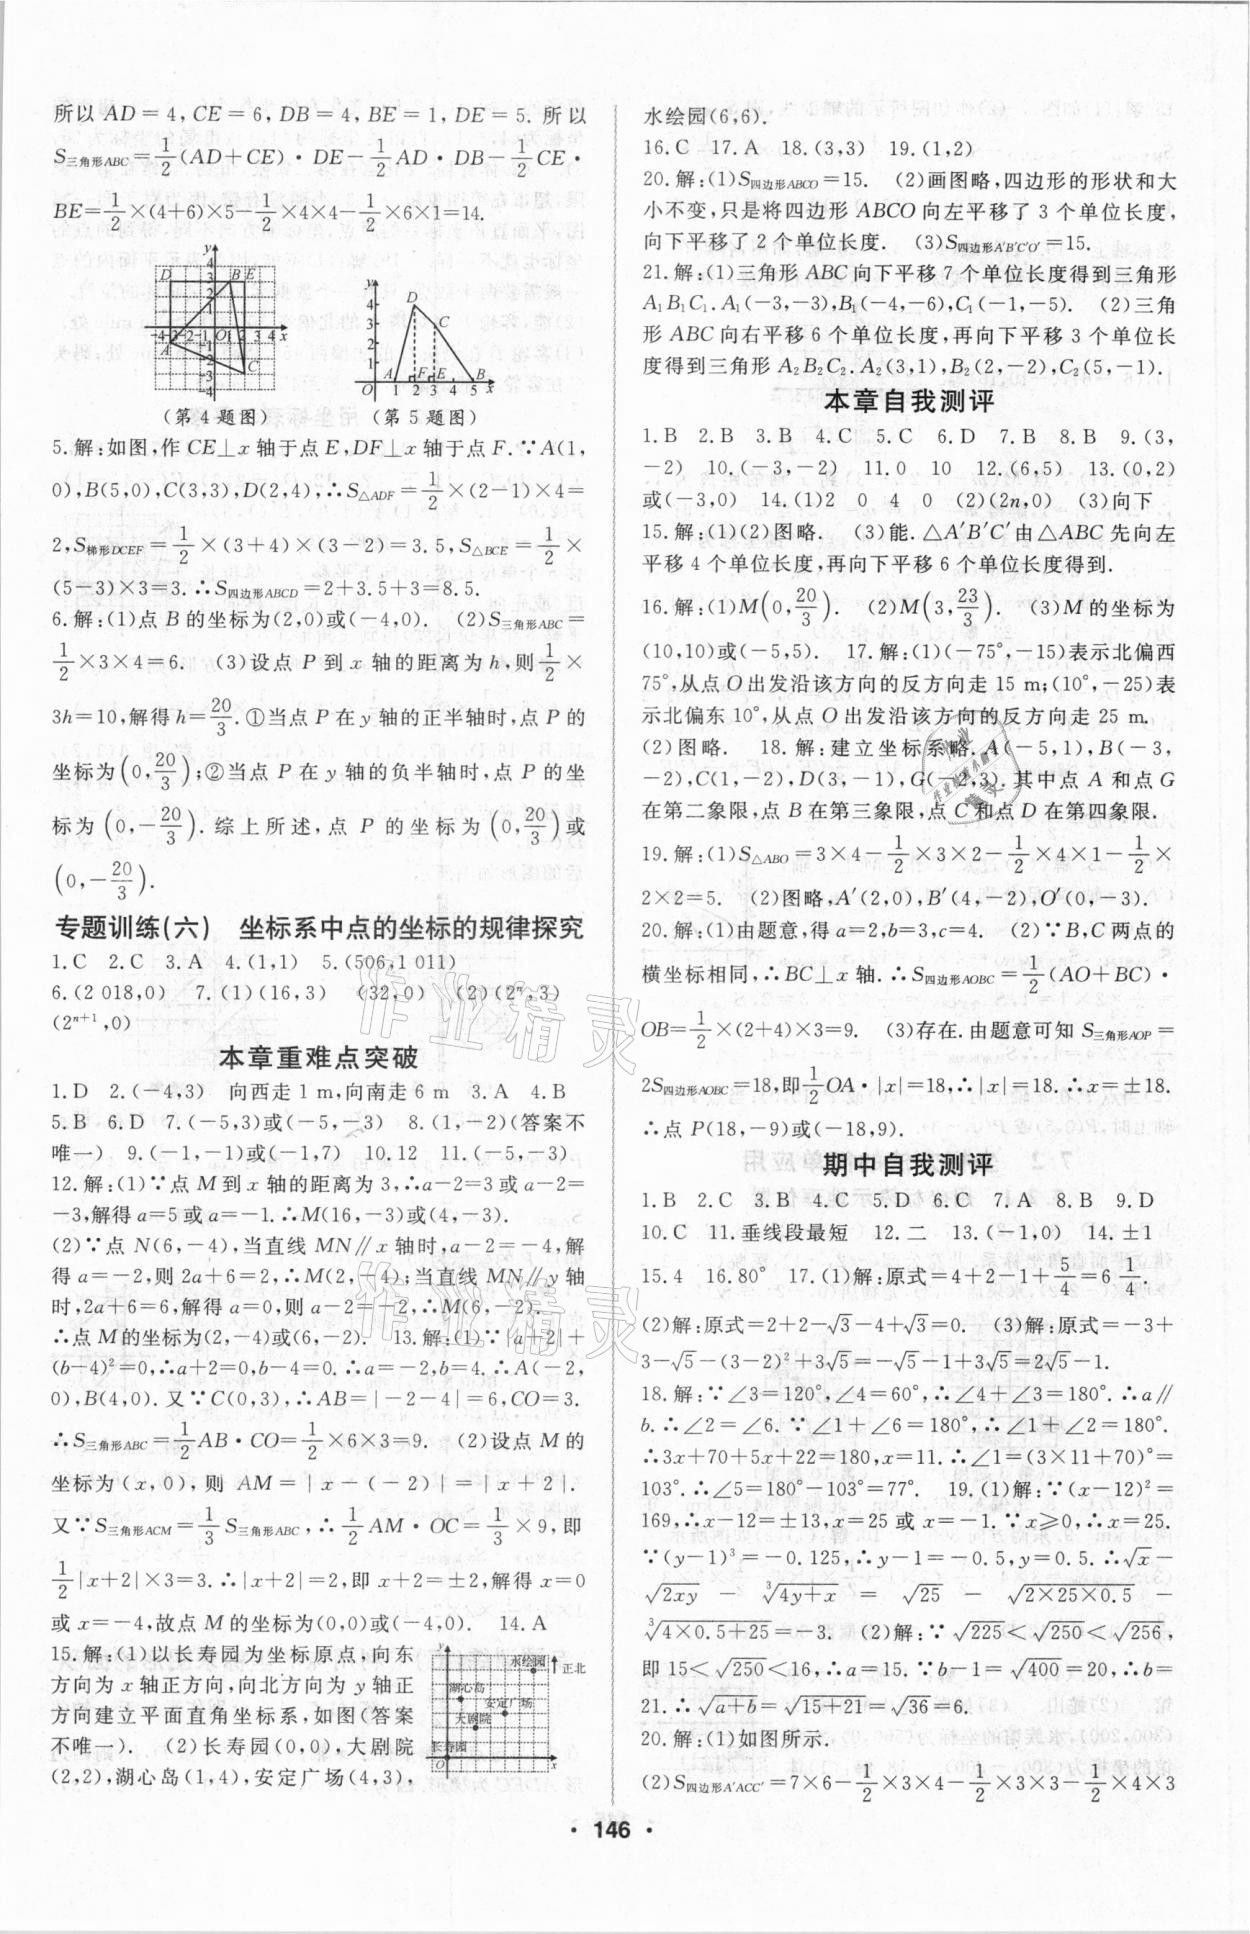 所以 AD=4,CE=6,DB=4,BE=1,DE=5.所以
S三角形ABC=1/2(AD+CE)·DE-1/2AD·DB-1/2CE·
BE=1/2×(4+6)×5-1/2×4×4-1/2×6×1=14.
(第4题图) (第5题图)
5.解:如图,作CE⊥x轴于点E,DF⊥x轴于点F.∵A(1,
0),B(5,0),C(3,3),D(2,4),∴S△ADF=1/2×(2-1)×4=
2,S梯形DCEF=1/2×(3+4)×(3-2)=3.5,S△BCE=1/2×
(5-3)×3=3.∴S四边形ABCD=2+3.5+3=8.5.
6.解:(1)点B的坐标为(2,0)或(-4,0). (2)S三角形ABC=
1/2×3×4=6. (3)设点P到x轴的距离为h,则1/2×
3h=10,解得h=20/3.①当点P在y轴的正半轴时,点P的
坐标为(0,20/3);②当点P在y轴的负半轴时,点P的坐
标为(0,-20/3).综上所述,点P的坐标为(0,20/3)或
(0,-20/3).
专题训练(六) 坐标系中点的坐标的规律探究
1.C 2.C 3.A 4.(1,1) 5.(506,1 011)
6.(2 018,0) 7.(1)(16,3) (32,0) (2)(2ⁿ,3)
(2ⁿ⁺¹,0)
本章重难点突破
1.D 2.(-4,3) 向西走1 m,向南走6 m 3.A 4.B
5.B 6.D 7.(-5,3)或(-5,-3) 8.(1,-2)(答案不
唯一) 9.(-1,-1)或(-1,7) 10.12 11.(-5,-3)
12.解:(1)∵点M到x轴的距离为3,∴a-2=3或a-2=
-3,解得a=5或a=-1.∴M(16,-3)或(4,-3).
(2)∵点N(6,-4),当直线MN∥x轴时,a-2=-4,解
得a=-2,则2a+6=2,∴M(2,-4);当直线MN∥y轴
时,2a+6=6,解得a=0,则a-2=-2,∴M(6,-2).
∴点M的坐标为(2,-4)或(6,-2). 13.解:(1)∵|a+2|+
(b-4)²=0,∴a+2=0,b-4=0.∴a=-2,b=4.∴A(-2,
0),B(4,0).又∵C(0,3),∴AB=|-2-4|=6,CO=3.
∴S三角形ABC=1/2AB·CO=1/2×6×3=9. (2)设点M的
坐标为(x,0),则AM=|x-(-2)|=|x+2|.
又∵S三角形ACM=1/3S三角形ABC,∴1/2AM·OC=1/3×9,即
1/2|x+2|×3=3.∴|x+2|=2,即x+2=±2,解得x=0
或x=-4,故点M的坐标为(0,0)或(-4,0). 14.A
15.解:(1)以长寿园为坐标原点,向东
方向为x轴正方向,向北方向为y轴正
方向建立平面直角坐标系,如图(答案
不唯一). (2)长寿园(0,0),大剧院
(2,2),湖心岛(1,4),安定广场(4,3),
水绘园
正北
湖心岛
安定广场
大剧院
长寿园
水绘园(6,6).
16.C 17.A 18.(3,3) 19.(1,2)
20.解:(1)S四边形ABCO=15. (2)画图略,四边形的形状和大
小不变,只是将四边形ABCO向左平移了3个单位长度,
向下平移了2个单位长度. (3)S四边形A′B′C′O′=15.
21.解:(1)三角形ABC向下平移7个单位长度得到三角形
A₁B₁C₁.A₁(-3,-3),B₁(-4,-6),C₁(-1,-5). (2)三角
形ABC向右平移6个单位长度,再向下平移3个单位长度
得到三角形A₂B₂C₂.A₂(3,1),B₂(2,-2),C₂(5,-1).
本章自我测评
1.B 2.B 3.B 4.C 5.C 6.D 7.B 8.B 9.(3,
-2) 10.(-3,-2) 11.0 10 12.(6,5) 13.(0,2)
或(-3,0) 14.(1)2 0 4 0 (2)(2n,0) (3)向下
15.解:(1)(2)图略. (3)能.△A′B′C′由△ABC先向左
平移4个单位长度,再向下平移6个单位长度得到.
16.解:(1)M(0,20/3). (2)M(3,23/3). (3)M的坐标为
(10,10)或(-5,5). 17.解:(1)(-75°,-15)表示北偏西
75°,从点O出发沿该方向的反方向走15 m;(10°,-25)表
示北偏东10°,从点O出发沿该方向的反方向走25 m.
(2)图略. 18.解:建立坐标系略.A(-5,1),B(-3,
-2),C(1,-2),D(3,-1),G(-2,3).其中点A和点G
在第二象限,点B在第三象限,点C和点D在第四象限.
19.解:(1)S△ABO=3×4-1/2×3×2-1/2×4×1-1/2×
2×2=5. (2)图略,A′(2,0),B′(4,-2),O′(0,-3).
20.解:(1)由题意,得a=2,b=3,c=4. (2)∵B,C两点的
横坐标相同,∴BC⊥x轴.∴S四边形AOBC=1/2(AO+BC)·
OB=1/2×(2+4)×3=9. (3)存在.由题意可知S三角形AOP=
2S四边形AOBC=18,即1/2OA·|x|=18,∴|x|=18.∴x=±18.
∴点P(18,-9)或(-18,9).
期中自我测评
1.B 2.C 3.B 4.C 5.D 6.C 7.A 8.B 9.D
10.C 11.垂线段最短 12.二 13.(-1,0) 14.±1
15.4 16.80° 17.(1)解:原式=4+2-1+5/4=6 1/4.
(2)解:原式=2+2-√3-4+√3=0. (3)解:原式=-3+
3-√5-(3-2)²+3√5=-√5-1+3√5=2√5-1.
18.解:∵∠3=120°,∠4=60°,∴∠4+∠3=180°.∴a∥
b.∴∠2=∠6.∵∠1+∠6=180°,∴∠1+∠2=180°.
∴3x+70+5x+22=180,x=11.∴∠1=(3×11+70)°=
103°.∴∠5=180°-103°=77°. 19.(1)解:∵(x-12)²=
169,∴x-12=±13,x=25或x=-1.∵x⩾0,∴x=25.
∵(y-1)³=-0.125,∴y-1=-0.5,y=0.5.∴√x-
√(2xy)-³√(4y+x)=√25-√(2×25×0.5)-
³√(4×0.5+25)=-3. (2)解:∵√225<√250<√256,
即15<√250<16,∴a=15.∵b-1=√400=20,∴b=
21.∴√(a+b)=√(15+21)=√36=6.
20.解:(1)如图所示.
(2)S四边形A′ACC′=7×6-1/2×3×4-1/2×3×3-1/2×4×3
·146·
作业精灵
作业精灵